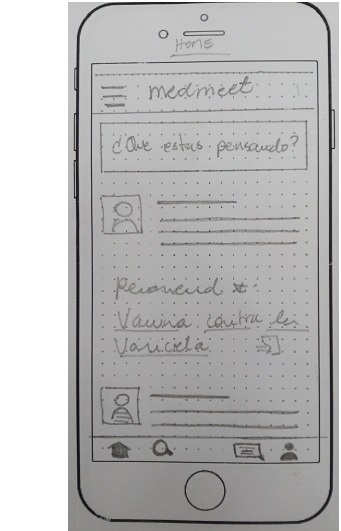 Home
medmeet
¿Que estas pensando?
Recomend
Vacuna contra la
Varicela